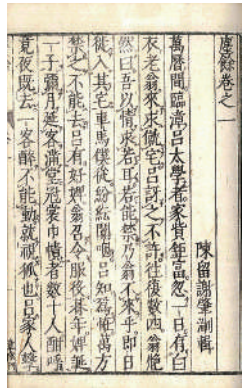 塵餘卷之一
陳留謝肇淛輯
萬曆間臨漳呂太學者家貲鉅富忽一日有白
衣老翁來求僦宅呂訝之不許往復數四翁艴
然曰吾以情求若耳若能禁乃翁不來乎即日
徙入其宅車馬僕從紛紜鬧咽呂知為妖萬方
禁之不能去呂有好婢翁召令服後朞年婢誕
一子彌月延客滿堂冠裳巾幘者數十人酣呼
竟夜既去一客醉不能動就視狐也呂家人擊